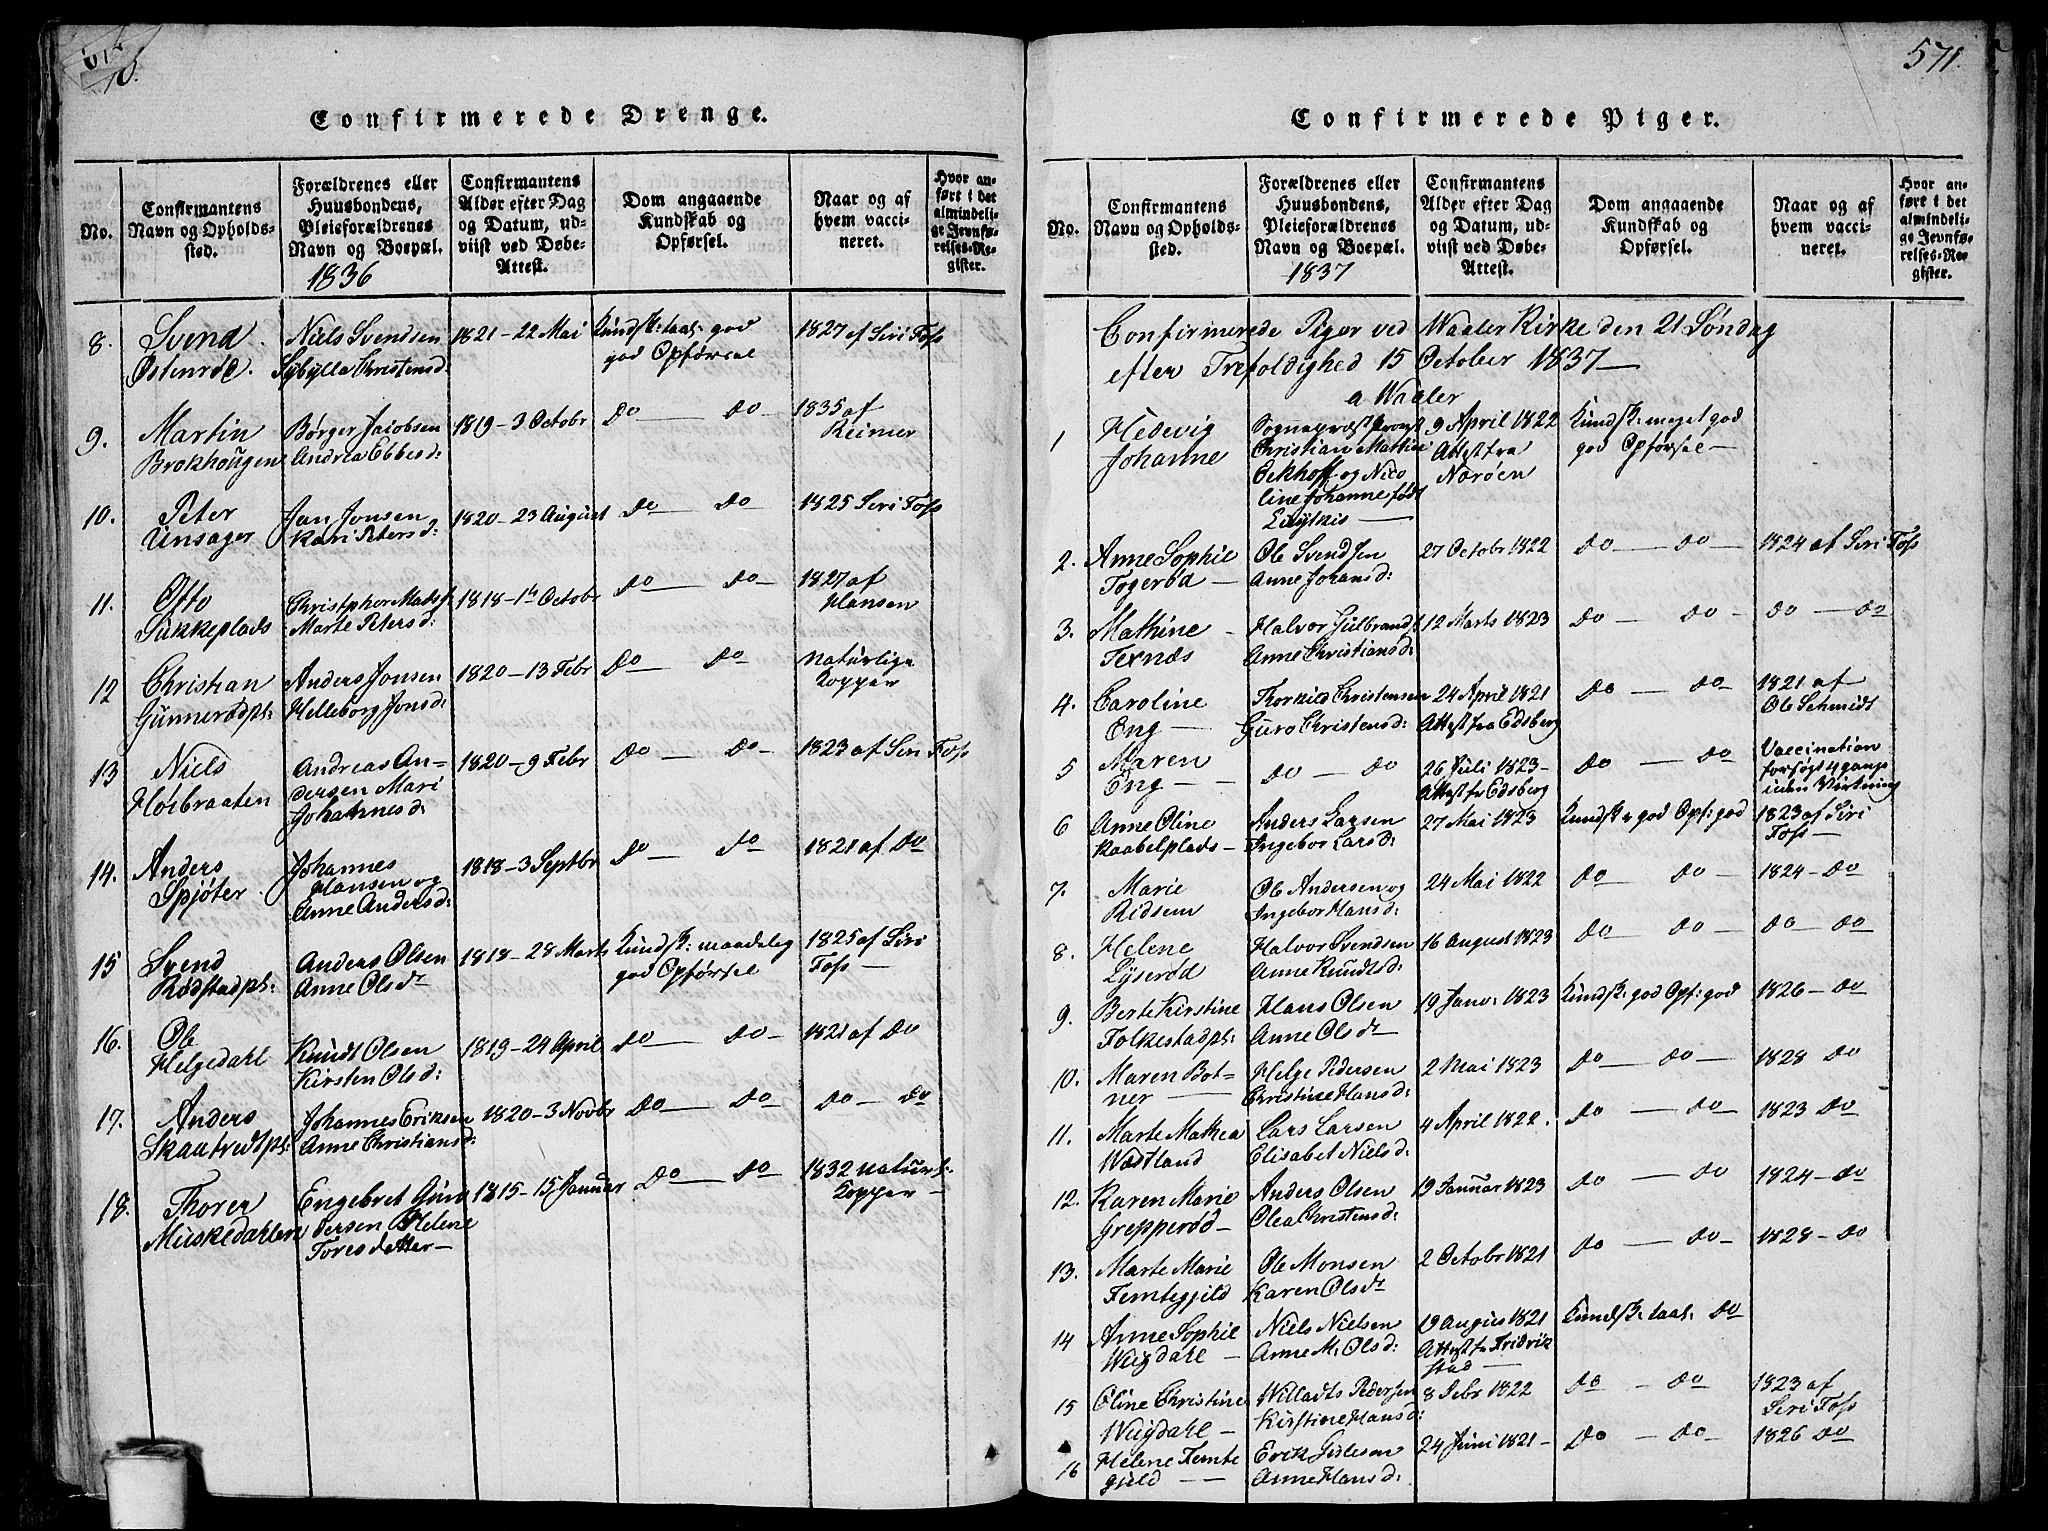 Confirmerede Drenge.
No.
Confirmantens
Navn og Opholds-
sted.
Forældrenes eller
Huusbondens,
Pleieforældrenes
Navn og Boepæl.
1836
Confirmantens
Alder efter Dag
og Datum, ud-
viist ved Døbe-
Attest.
Dom angaaende
Kundskab og
Opførsel.
Naar og af
hvem vacci-
neret.
Hvor an-
ført i det
almindeli-
ge Jevnfø-
relses-Re-
gister.
8. Svend Niels Svendsen 1821-22 Mai Kundsk: taal: god 1827 af Siri Foss
Østenrøe. Sybylla Christensd: god Opførsel
9. Martin Børger Jacobsen 1819-3 Octobr Do — Do 1835 af
Brokhougen Andrea Ebbesd: Reimer
10. Peter Jan Jonsen 1820-23 August Do — Do 1825 Siri Foss
Unsager Kari Petersd:
11. Otto Christopher Matss: 1818-1te Octobr Do — Do 1827 af
Sukkeplads Marte Petersd: Hansen
12 Christian Anders Jonsen 1820-13 Febr Do — Do naturlige
Gunnerødpl: Helleborg Jonsd: Kopper
13 Niels Andreas An= 1820-9 Febr Do — Do 1823 af Siri Foss
Høibraaten dersen Mari
Johannesd:
14. Anders Johannes 1818-3 Septbr Do — Do 1821 af Do
Spjøter Hansen og
Anne Andersd:
15 Svend Anders Olsen 1818-28 Marts Kundsk: maadelig 1825 af Siri
Rødstadpl: Anne Olsdr god Opførsel Foss —
16. Ole Knudt Olsen 1819-24 April Do — Do 1821 af Do
Helgedahl Kirsten Olsd:
17. Anders Johannes Eriksen 1820-3 Novbr Do — Do Do — Do
Skaatvedtpl: Anne Christiansd:
18. Thorer Engebret Gun 1815-15 Januar Do — Do 1832 naturl:
Muskedahlen dersen Helene Kopper —
Toresdatter —
571.
Confirmerede Piger.
No.
Confirmantens
Navn og Opholds-
sted.
Forældrenes eller
Huusbondens,
Pleieforældrenes
Navn og Boepæl.
1837
Confirmantens
Alder efter Dag
og Datum, ud-
viist ved Døbe-
Attest.
Dom angaaende
Kundskab og
Opførsel.
Naar og af
hvem vacci-
neret.
Hvor an-
ført i det
almindeli-
ge Jevnfø-
relses-Re-
gister.
Confirmerede Piger ved Waaler Kirke den 21 Søndag
efter Trefoldighed 15 October 1837 —
a Waaler
1 Hedevig Sognepræst Provst 9 April 1822 Kundsk: meget god
Johanne Christian Mathias Attest fra god Opførsel —
Eckhoff og Nico Narøen
line Johanne født

2. Anne Sophie Ole Svendsen 27 Octobr 1822 Do — Do — 1824 af Siri Foss
Togerød — Anne Johansd:
3. Mathine — Halvor Gulbrands: 12 Marts 1823 Do — Do — Do — Do
Texnæs Anne Christiansd:
4. Caroline Thorkild Christensen 24 April 1821 Do — Do 1821 af
Eng — Guro Christensd: Attest fra Edsberg Ole Schmidt
5 Maren Do — Do 26 Juli 1823 - Do — Do Vaccination
Eng — Attest fr Edsberg forsøgt 4 gange
uden Virkning
6 Anne Oline Anders Larsen 27 Mai 1823 Kundsk: god Opf: god 1823 af Siri
Kaabelplads — Ingebor Larsd: Foss —
7. Marie Ole Andersen og 24 Mai 1822 Do — Do — 1824 — Do
Ridsem Ingebor Hansd:
8. Helene Halvor Svendsen 16 August 1823 Do — Do — Do — Do
Lyserød Anne Knudtsd:
9. Berte Kirstine Hans Olsen 19 Janu: 1823 Kundsk: god Opf: god 1826 — Do
Folkestadpl: Anne Olsdr
10. Maren Bot= Helge Pedersen 2 Mai 1823 Do — Do — 1828 Do
ner — Christine Hansd:
11. Marte Mathea Lars Larsen 4 April 1822. Do — Do 1823 Do
Wædtland Elisabet Nielsd:
12. Karen Marie Anders Olsen 19 Januar 1823 Do — Do 1824 — Do
Grepperød — Olea Christensd:
13. Marte Marie Ole Monsen 2 Octobr 1821 Do — Do — 1828 — Do
Femtegjeld Karen Olsdr
14 Anne Sophie Niels Nielsen 19 Augus 1821 Kundsk: taal: Do
Wugdahl — Anne M. Olsd: Attest fr Fridrik
stad —
15 Oline Christine Willadts Pedersen 8 Febr 1822 Do — Do 1823 af
Wugdahl — Kirstine Hansd: Siri Foss
16 Helene Femte Erik Gulesen 24 Juni 1821 - Do — Do — 1826 Do
gjeld — Anne Hansd: